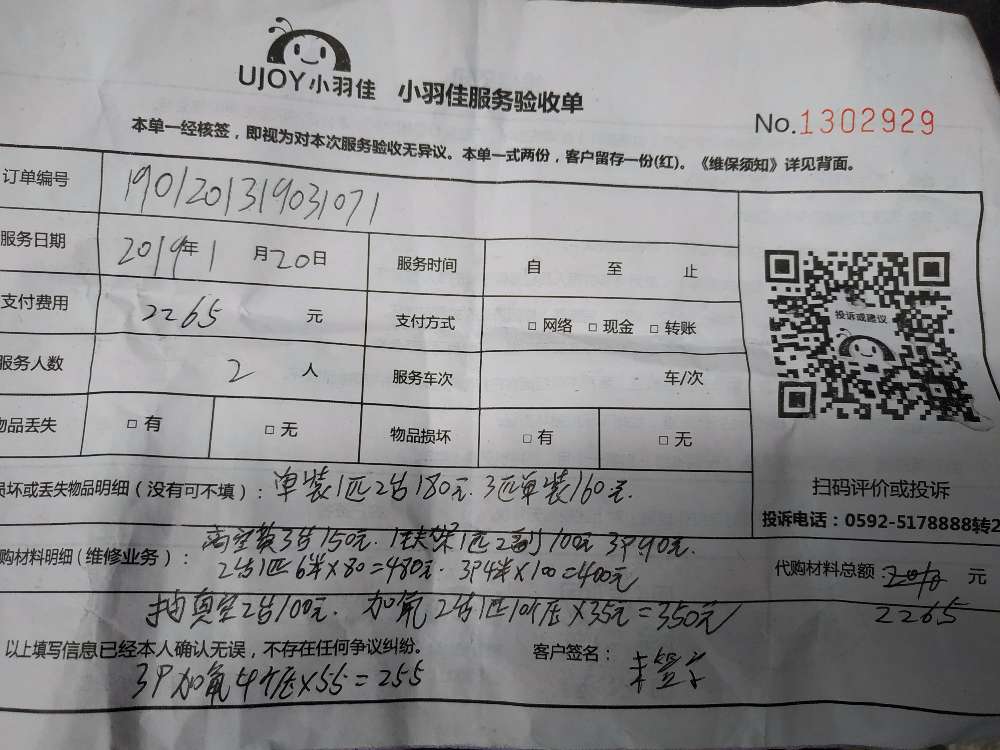 UJOY小羽佳 小羽佳服务验收单
No.1302929
本单一经核签，即视为对本次服务验收无异议。本单一式两份，客户留存一份(红)。《维保须知》详见背面。
订单编号 1901201319031071
服务日期 2019年1月20日 服务时间 自 至 止
支付费用 2265 元 支付方式 □ 网络 □ 现金 □ 转账
服务人数 2 人 服务车次 车/次
物品丢失 □ 有 □ 无 物品损坏 □ 有 □ 无
投诉或建议
扫码评价或投诉
投诉电话：0592-5178888转2
损坏或丢失物品明细（没有可不填）：单装1匹2台180元.3匹单装160元.
高空费3台150元.铁架1匹2副100元 3P90元.
购材料明细（维修业务）：
2台1匹6米×80=480元.3P4米×100=400元
代购材料总额： 元
2265
抽真空2台100元.加氟2台1匹10个压×35元=350元
以上填写信息已经本人确认无误，不存在任何争议纠纷。
客户签名：未签字
3P加氟4个压×55=255